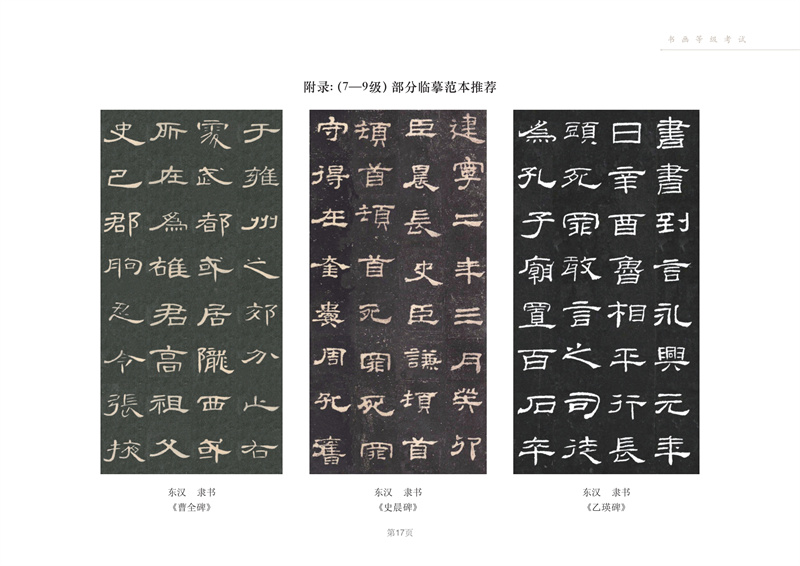 书画等级考试
附录:(7—9级)部分临摹范本推荐
于雍州之郊分止右
處武都或居隴西或
所在為雄君高祖父
史巴郡朐忍令張掖
东汉 隶书
《曹全碑》
建寧二年三月癸卯
臣晨長史臣謙頓首
頓首頓首死罪死罪
守得在奎婁周孔舊
东汉 隶书
《史晨碑》
書書到言永興元年
日辛酉魯相平行長
頭死罪敢言之司徒
為孔子廟置百石卒
东汉 隶书
《乙瑛碑》
第17页